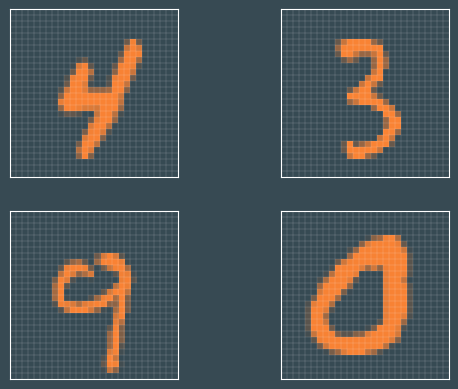 4 3
9 0